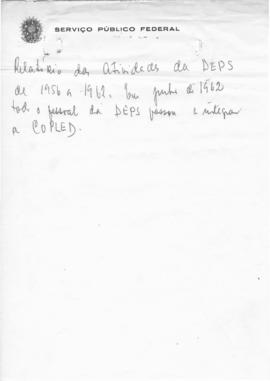 SERVIÇO PÚBLICO FEDERAL
Relatório das Atividades da DEPS
de 1956 a 1962. Em junho de 1962
todo o pessoal da DEPS passou a integrar
a COPLED.